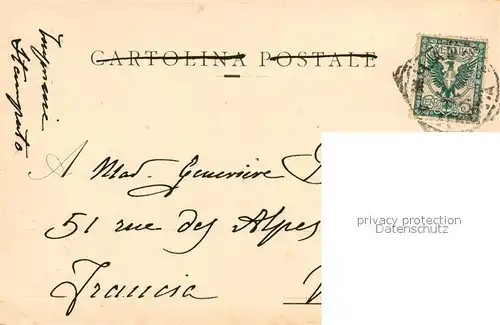 Imprimé
Stampato
CARTOLINA POSTALE
A Mad. Geneviève
51 rue des Alpes
Francia
privacy protection
Datenschutz